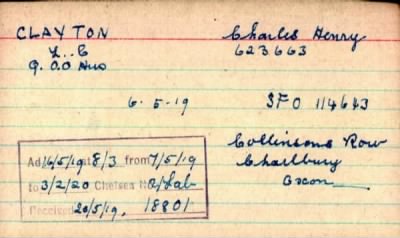 CLAYTON Charles Henry
L..C 623663
Q.O.O Hus
6. 5. 19 SFO 1/4643
Collinsons Row
Charlbury
Oxon
Ad 16/5/19 at 8/3 from 7/5/19
to 3/2/20 Chelsea No/Lab
Received 20/5/19. 18801